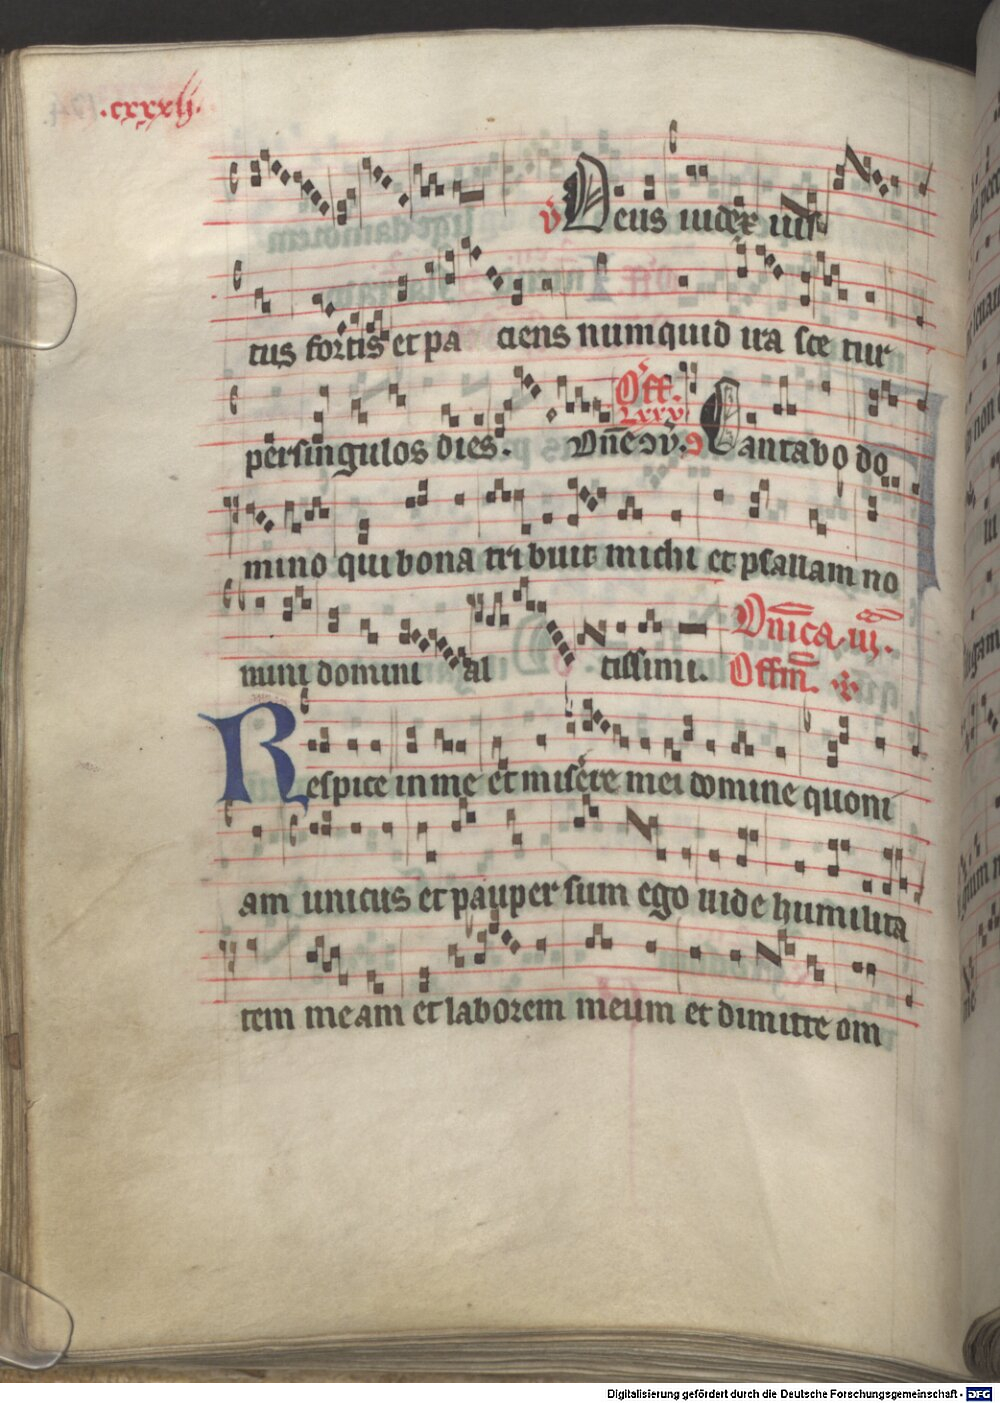 .cxxxij.
v̄ Deus iudex ius
tus fortis et pa ciens numquid ira sce tur
Off.
lxxv
per singulos dies. Dn̄e Cantabo do
mino qui bona tribuit michi et psallam no
mini domini al tissimi.
Dn̄ica. iij.
Offm̄.
Respice in me et miserere mei domine quoni
am unicus et pauper sum ego uide humilita
tem meam et laborem meum et dimitte om
Digitalisierung gefördert durch die Deutsche Forschungsgemeinschaft - DFG